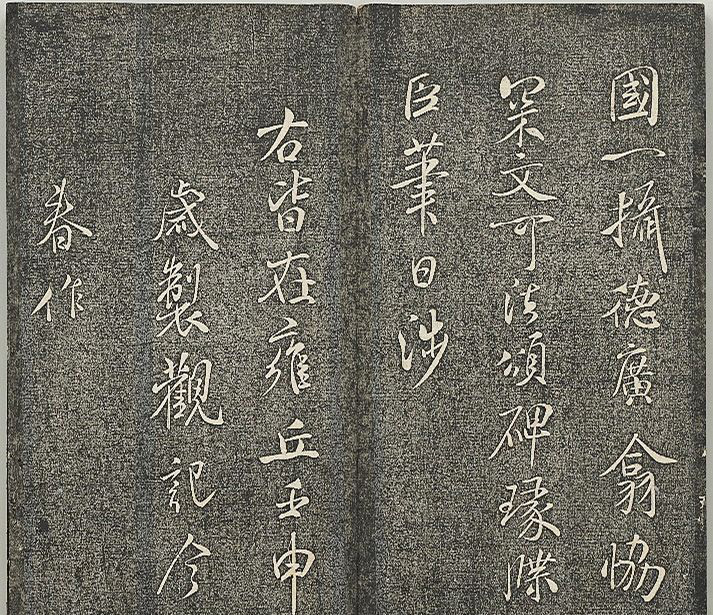 國一攝德廣翕協
罙文可法頌碑瑑牒
臣筆日涉
右皆在雍丘壬申
歲製觀記今
春作